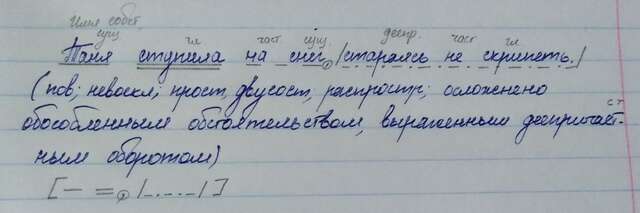 Имя собст.
сущ гл част. сущ. деепр. част гл
Таня ступила на снег, |стараясь не скрипеть.|
(пов; невоскл; прост, двусост, распростр; осложнено
обособленным обстоятельством, выраженным деепричаст-
ным оборотом)
[— =, |_._._|]